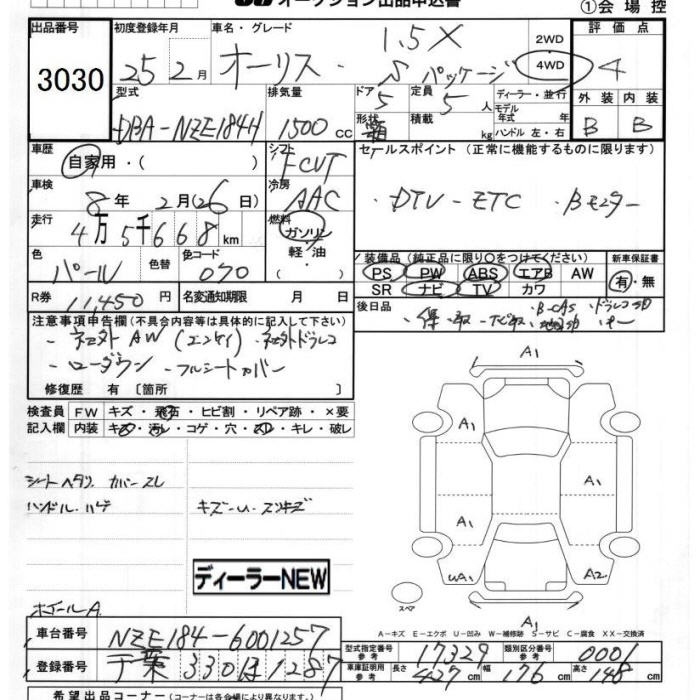 オークション出品申込書
①会場控
出品番号 初度登録年月 車名・グレード 1.5X 2WD 評価点
3030 25 2月 オーリス・ Sパッケージ 4WD 4
型式 排気量 ドア 定員 ディーラー・並行 外装 内装
DBA-NZE184H 1500cc 5 5人 モデル年式 年 B B
形状 箱 積載 kg ハンドル 左・右
車歴 シフト セールスポイント (正常に機能するものに限ります)
自家用・( ) FCVT
車検 冷房 ・DTV-ETC ・Bモニター
8年 2月(26日) AAC
走行 燃料
4万5千668km ガソリン 装備品(純正品に限り○をつけてください) 新車保証書
色 色替 色コード 軽・油 PS PW ABS エアB AW 有・無
パール 070 ・ SR ナビ TV カワ
R券 11,450円 名変通知期限 月 日 後日品
注意事項申告欄(不具合内容等は具体的に記入して下さい) ・保・取・ナビ取
・ネオト AW (エンケイ) ・ネオトドラレコ
・ローダウン ・フルシートカバー
修復歴 有 〔箇所 〕
検査員 FW キズ・飛石・ヒビ割・リペア跡・×要
記入欄 内装 キズ・汚レ・コゲ・穴・スレ・キレ・破レ
シートヘタリ カバースレ
ハンドル ハゲ キズ-U-スリキズ
A1
A1
A1
A1
A1
WA1
A2
A1
スペア
ディーラーNEW
ホイールA
A-キズ E-エクボ U-凹み W-補修跡 S-サビ C-腐食 XX-交換済
車台番号 NZE184-6001257 型式指定番号参考 17329 類別区分番号 0001
登録番号 千葉330ほ1287 車庫証明用参考 長さ 427cm 幅 176cm 高さ 148cm
希望出品コーナー(コーナーは各会場により異なります。)